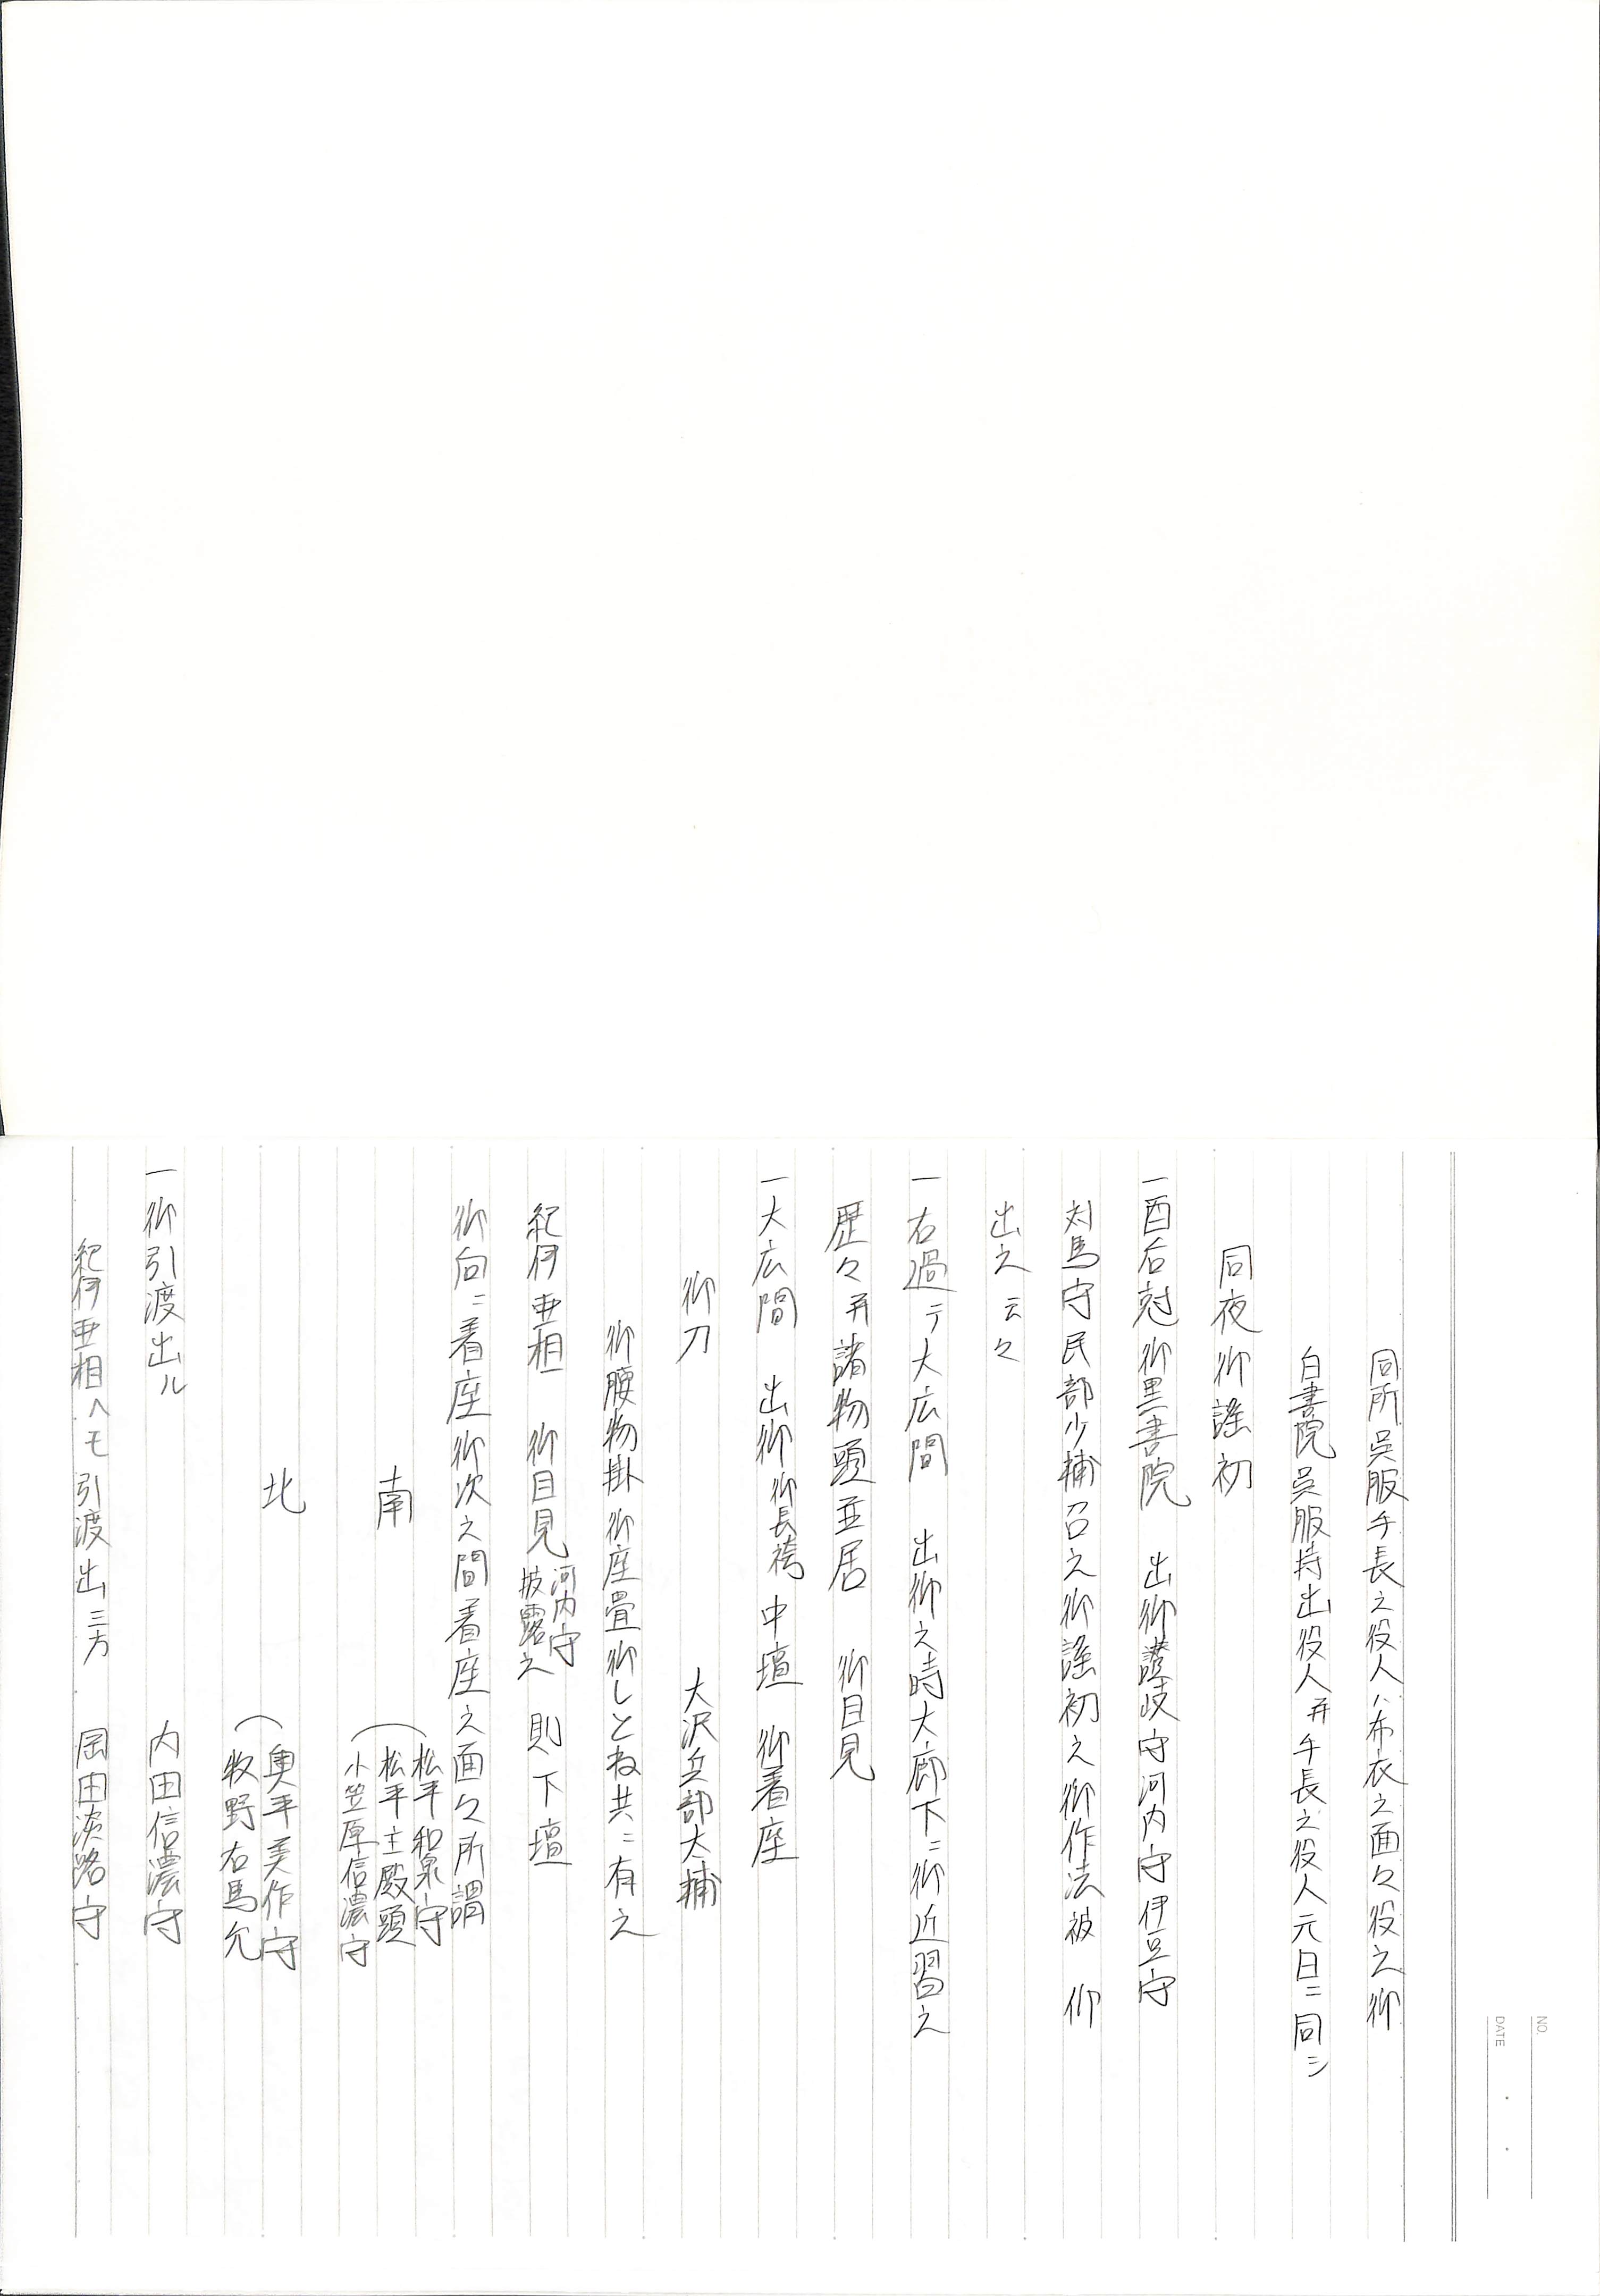 NO.
DATE
同所呉服手長之役人ハ布衣之面々役之御
白書院呉服持出役人并手長之役人元日ニ同シ
同夜御謡初
一酉后尅御黒書院　出御讃岐守河内守伊豆守
対馬守民部少輔召之御謡初之御作法被　仰
出之云々
一右過テ大広間　出御之時大廊下ニ御近習之
歴々并諸物頭並居　御目見
一大広間　出御御長袴中壇　御着座
御刀　大沢兵部大輔
御腰物掛御座畳御しとね共ニ有之
紀伊亜相　御目見河内守披露之　則下壇
御向ニ着座御次之間着座之面々所謂
南　松平和泉守
松平主殿頭
小笠原信濃守
北　奥平美作守
牧野右馬允
一御引渡出ル　内田信濃守
紀伊亜相ヘモ引渡出三方　岡田淡路守